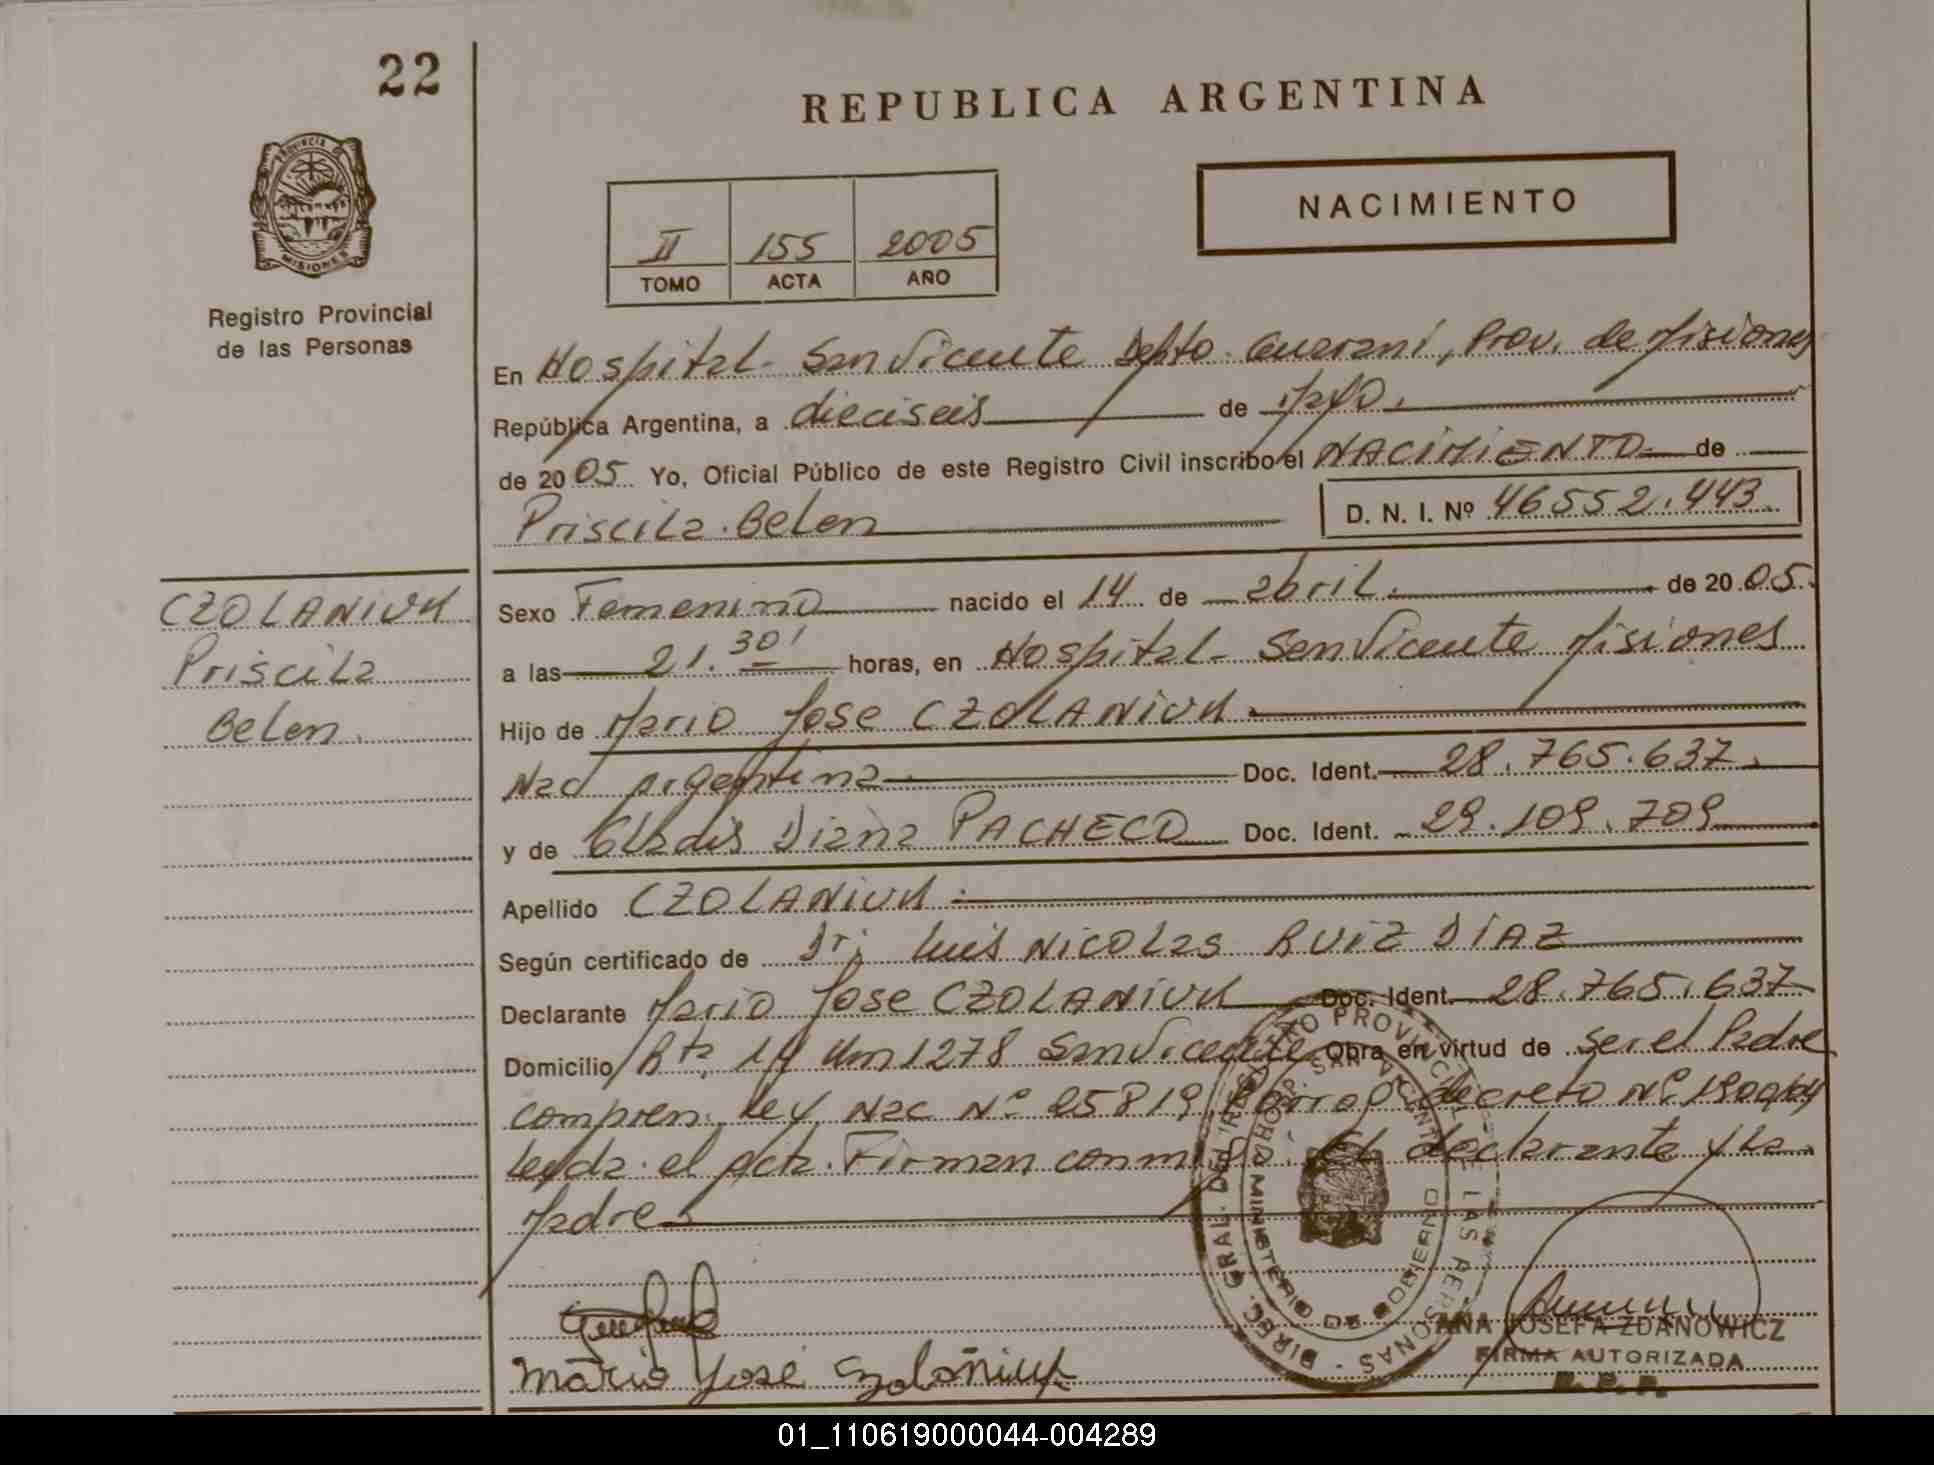 22
PROVINCIA DE
MISIONES
Registro Provincial
de las Personas
REPUBLICA ARGENTINA
NACIMIENTO
II 155 2005
TOMO ACTA AÑO
En Hospital San Vicente Depto. Guarani, Prov. de Misiones
República Argentina, a dieciseis de Mayo.
de 2005 Yo, Oficial Público de este Registro Civil inscribo el NACIMIENTO de
Priscila Belen D. N. I. Nº 46552.443.
CZOLANIUK
Priscila
Belen.
Sexo Femenino nacido el 14 de abril. de 2005.
a las 21.30' horas, en Hospital San Vicente Misiones
Hijo de Mario Jose CZOLANIUK
Nac Argentina Doc. Ident. 28.765.637.
y de Gladis Diana PACHECO Doc. Ident. 29.109.709
Apellido CZOLANIUK
Según certificado de Dr; Luis Nicolas RUIZ DIAZ
Declarante Mario Jose CZOLANIUK Doc. Ident. 28.765.637
Domicilio Rta, 14 Km 1278 San Vicente Obra en virtud de ser el Padre
compren. Ley Nac Nº 25819 decreto Nº
Leyda el acta. Firman conmigo: El declarante y La
Madre
DIREC. GRAL. DEL REGISTRO PROVINCIAL DE LAS PERSONAS
HOSP. SAN VICENTE
MINISTERIO DE GOBIERNO
Mario José Czolañiuk
ANA JOSEFA ZDANOWICZ
FIRMA AUTORIZADA
R. P. P.
01_110619000044-004289